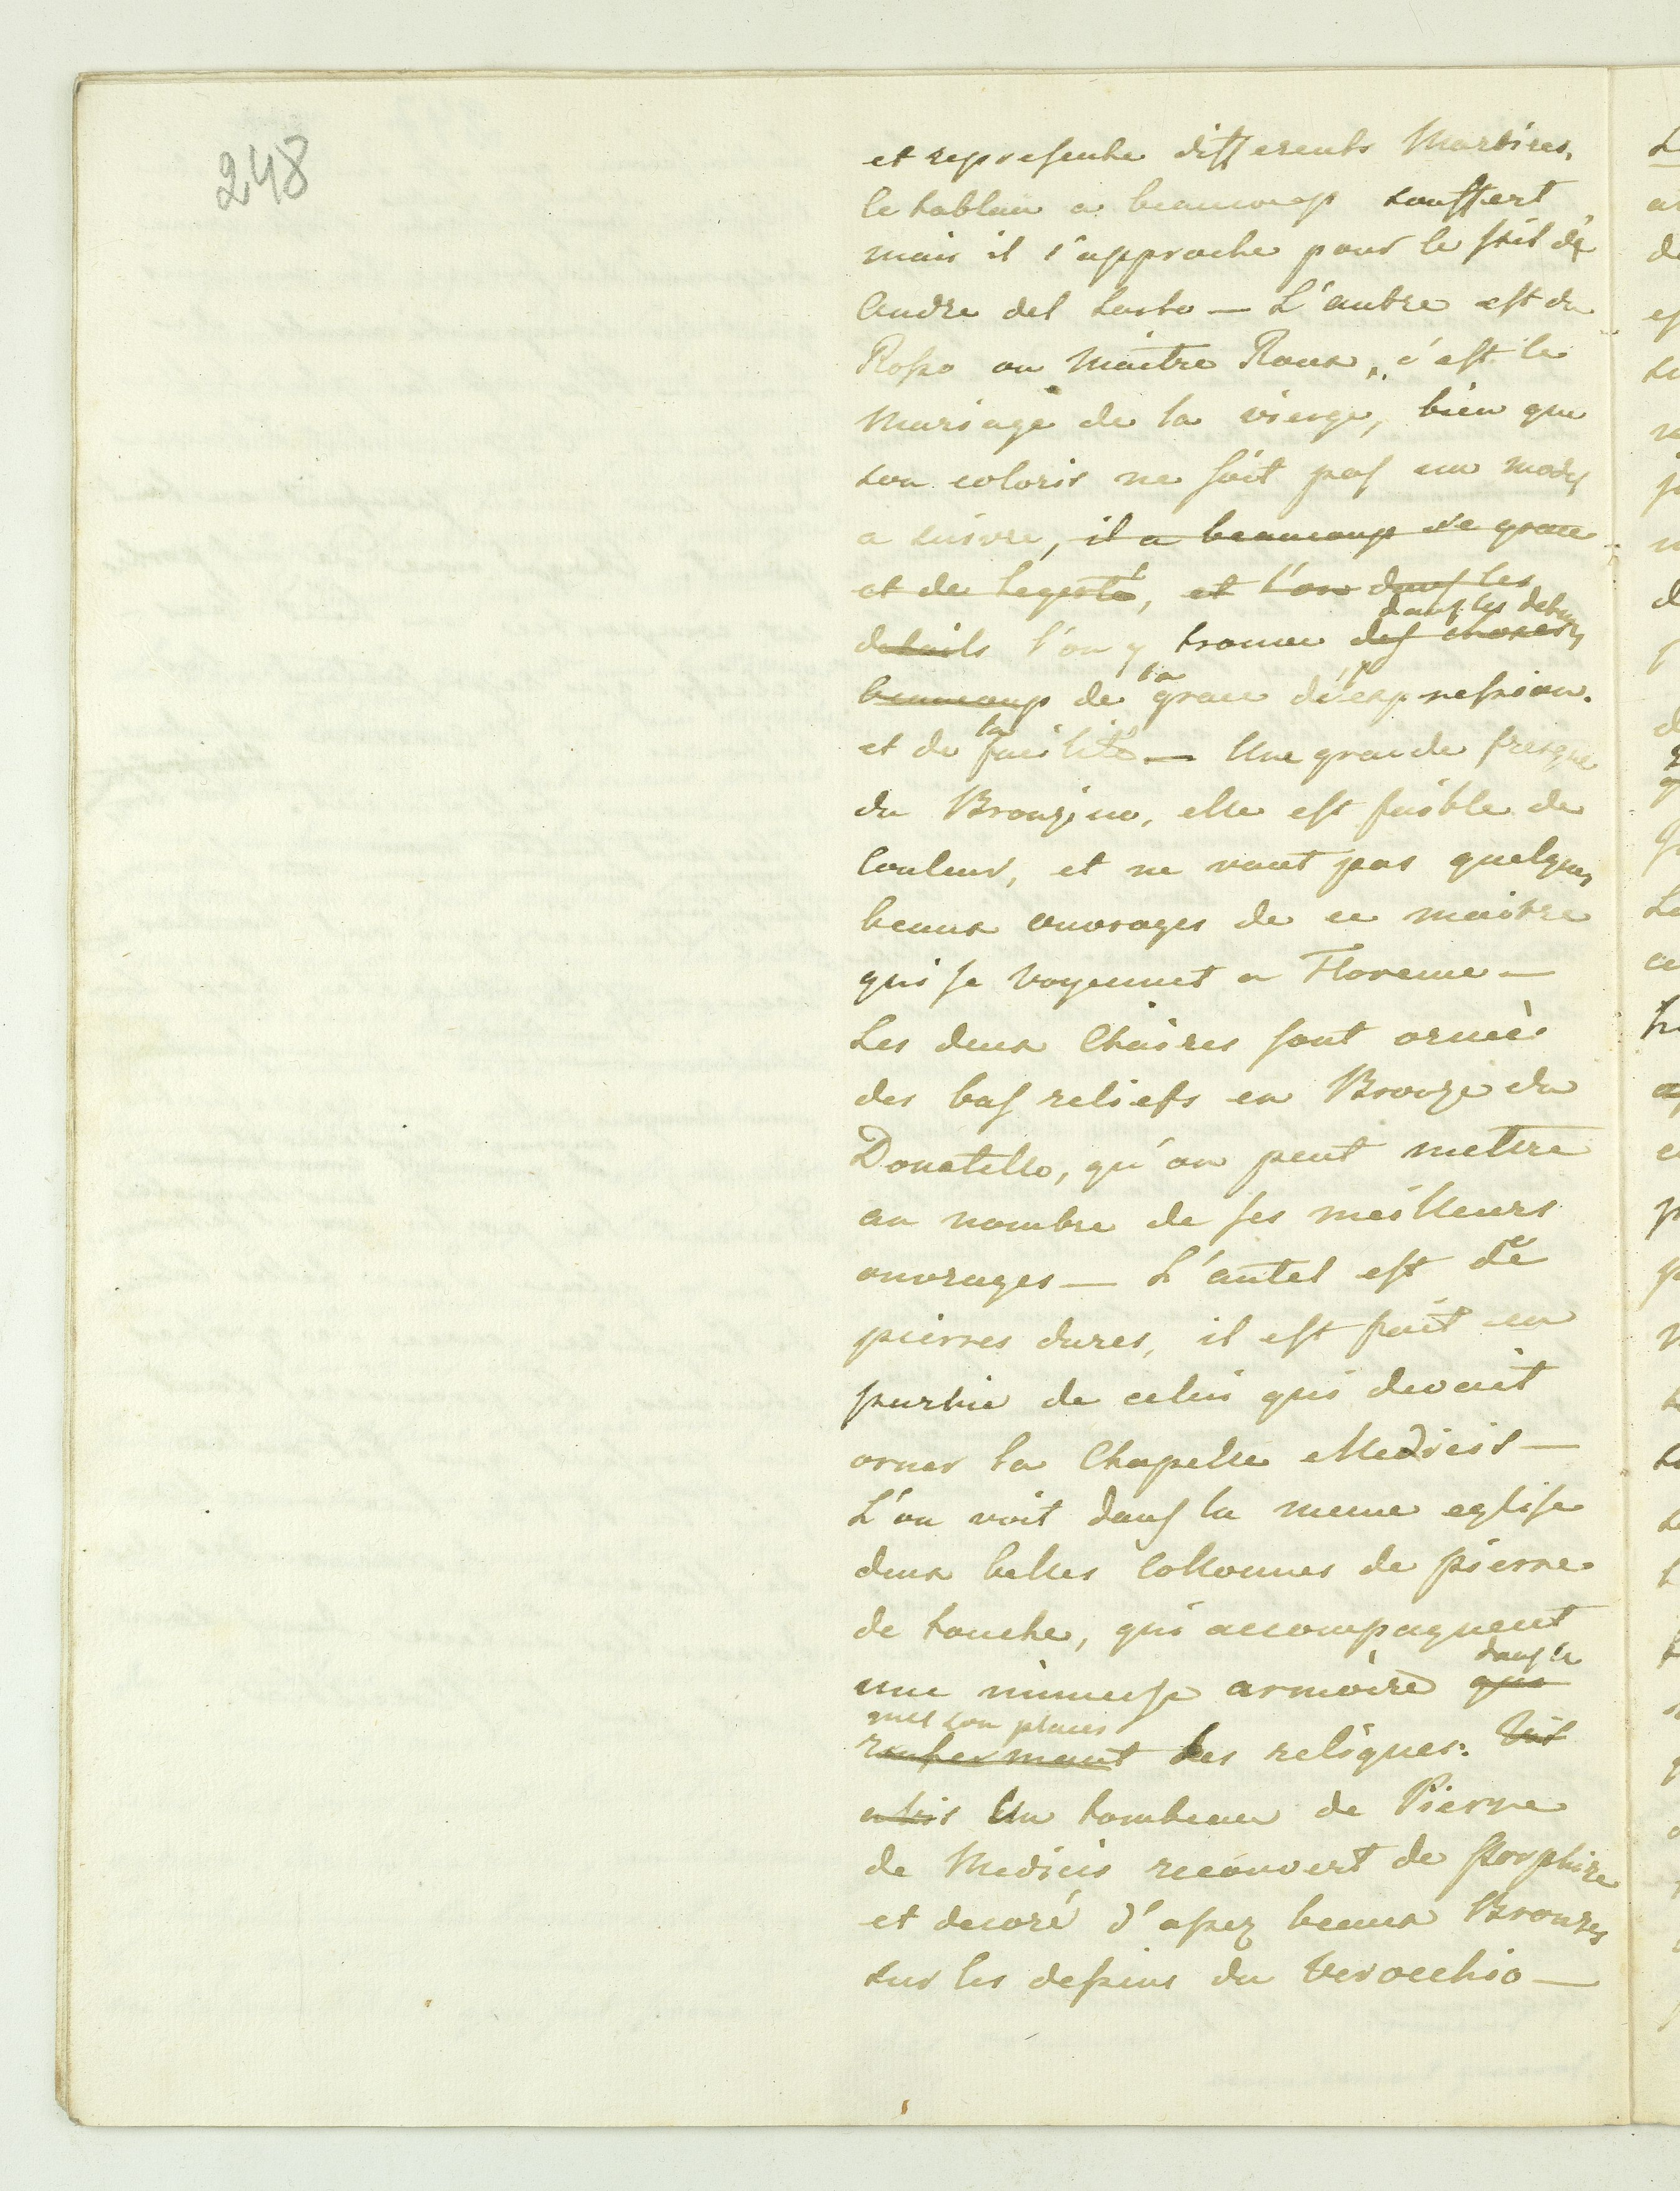 248
et represente differents Martires,
le tableau a beaucoup souffert
mais il s'approche pour le stil de
Andre del Sarto — L'autre est du
Rosso ou Maitre Roux, c'est le
Mariage de la vierge, bien que
son coloris ne soit pas un model
a suivre, il a beaucoup de grace
et de legereté, et l'on dans les
dans les details
details l'on y trouve des choses
la
beaucoup de grace d'expression.
la
et de facilité — Une grande fresque
du Bronzino, elle est foible de
Couleur, et ne vaut pas quelques
beaux ouvrages de ce maitre
qui se voyennet a Florence —
Les deux Chaires sont orneé
des bas reliefs en Bronze du
Donatello, qu'on peut mettre
au nombre de ses meilleurs
ouvrages — L'autel est de
pierres dures, il est fait en
partie de celui qui devait
orner la Chapelle Medicis —
L'on voit dans la meme eglise
deux belles Collonnes de pierre
de touche, qui accompagnent
dans la
une immense armoire que
quel son placés
renfermant les reliques.
Un tombeau de Pierre
de Medicis recouvert de Porphire
et decoré d'assez beaux Bronzes
sur les dessins du Verocchio —